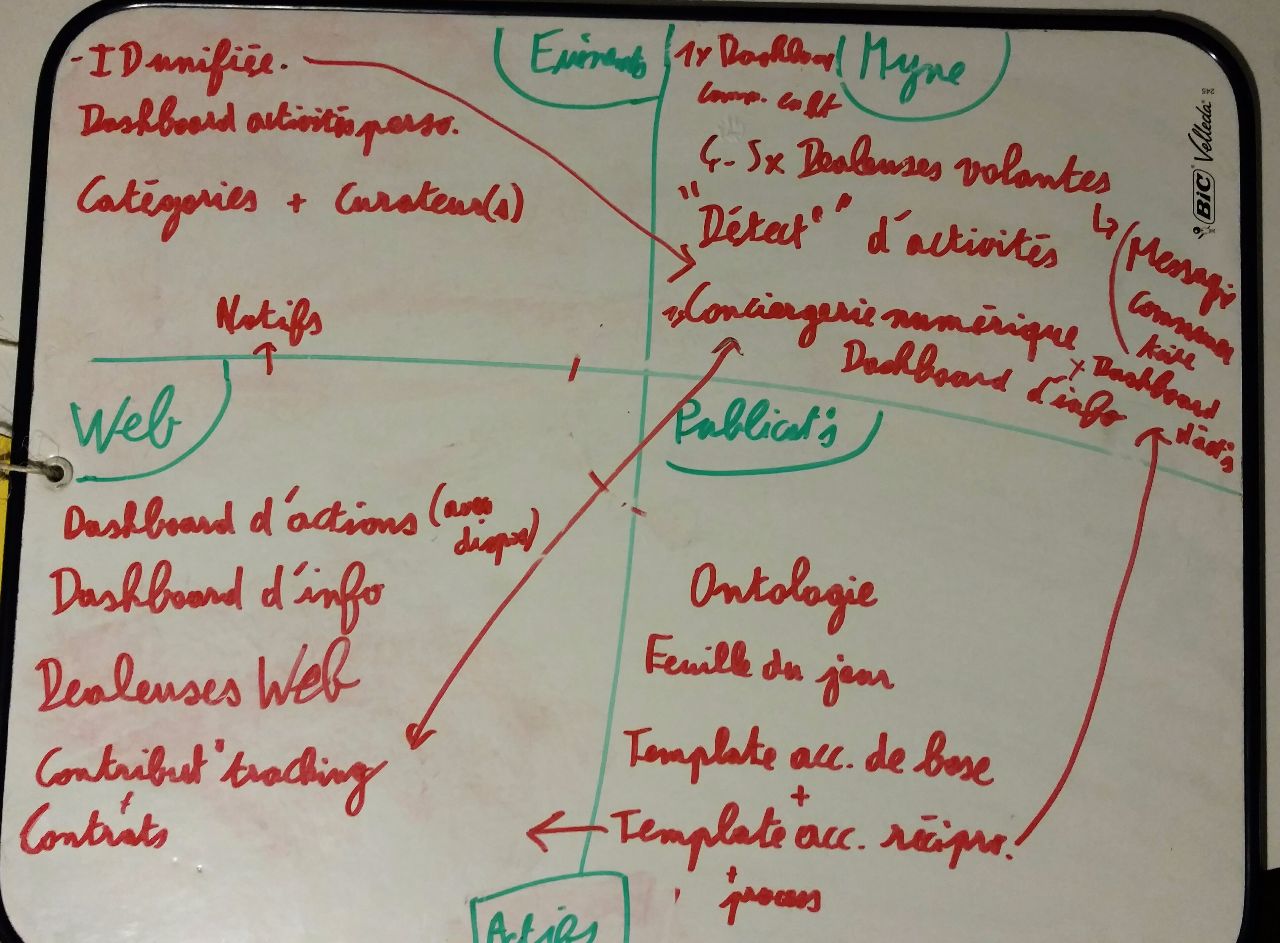 Evènements
- ID unifiée.
Dashboard activités perso.
Catégories + Curateur(s)
Notifs
Myne
1x Dashboar
comp. coll
4-5x Dealeuses volantes
"Détect°" d'activités
↳ (Messagerie
Commun
taire
Conciergerie numérique
Dashboard d'info
x Dashboard
d'act°s
BIC Velleda
Web
Dashboard d'actions (avec
dispos)
Dashboard d'info
Dealeuses Web
Contribut° tracking
+
Contrats
Publicat°s
Ontologie
Feuille du jour
Template acc. de base
+
Template acc. récipro.
+
process
Actifs